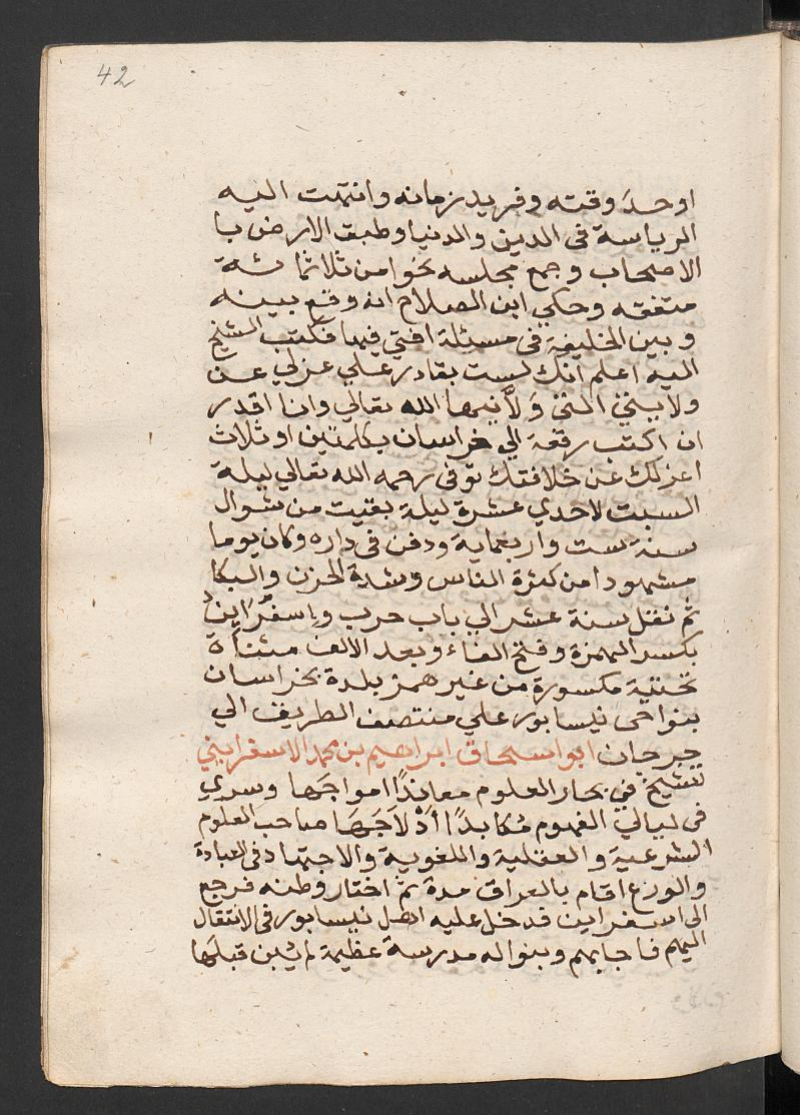 42
اوحدَ وقته وفريد زمانه وانتهت اليه
الرياسة فى الدين والدنيا وطبق الارض با
الاصحاب وجمع مجلسه نحوا من ثلاثمائة
متفقه وحكي ابن الصلاح انه وقع بينه
وبين الخليفة فى مسئلة افتي فيها فكتب الشيخ
اليه اعلم انك لست بقادر علي عزلي عن
ولايتي التي وَلَّانيها الله تعالي وانا اقدر
ان اكتب رقعة الي خراسان بكلمتين او ثلاث
اعزلك عن خلافتك توفى رحمه الله تعالي ليلة
السبت لاحدي عشرة ليلة بقيت من شوال
سنة ست واربعماية ودفن فى داره وكان يوما
مشهودا من كثرة الناس وشدة الحزن والبكا
ثم نقل سنة عشر الي باب حرب وإسفَرَاين
بكسر الهمزة وفتح الفاء وبعد الالف مثناة
تحتية مكسورة من غير همز بلدة بخراسان
بنواحى نيسابور علي منتصف الطريق الي
جرجان ابو اسحاق ابراهيم بن محمد الاسفرايني
شيخ في بحار العلوم معاندًا امواجَها وسري
فى ليالي الفهوم مُكابدًا أدْلاَجَهَا صاحب العلوم
الشرعية والعقلية واللغوية والاجتهاد فى العبادة
والورع اقام بالعراق مدة ثم اختار وطنه فرجع
الى اسفراين فدخل عليه اهل نيسابور فى الانتقال
اليهم فاجابهم وبنوا له مدرسة عظيمة لم يبن قبلها